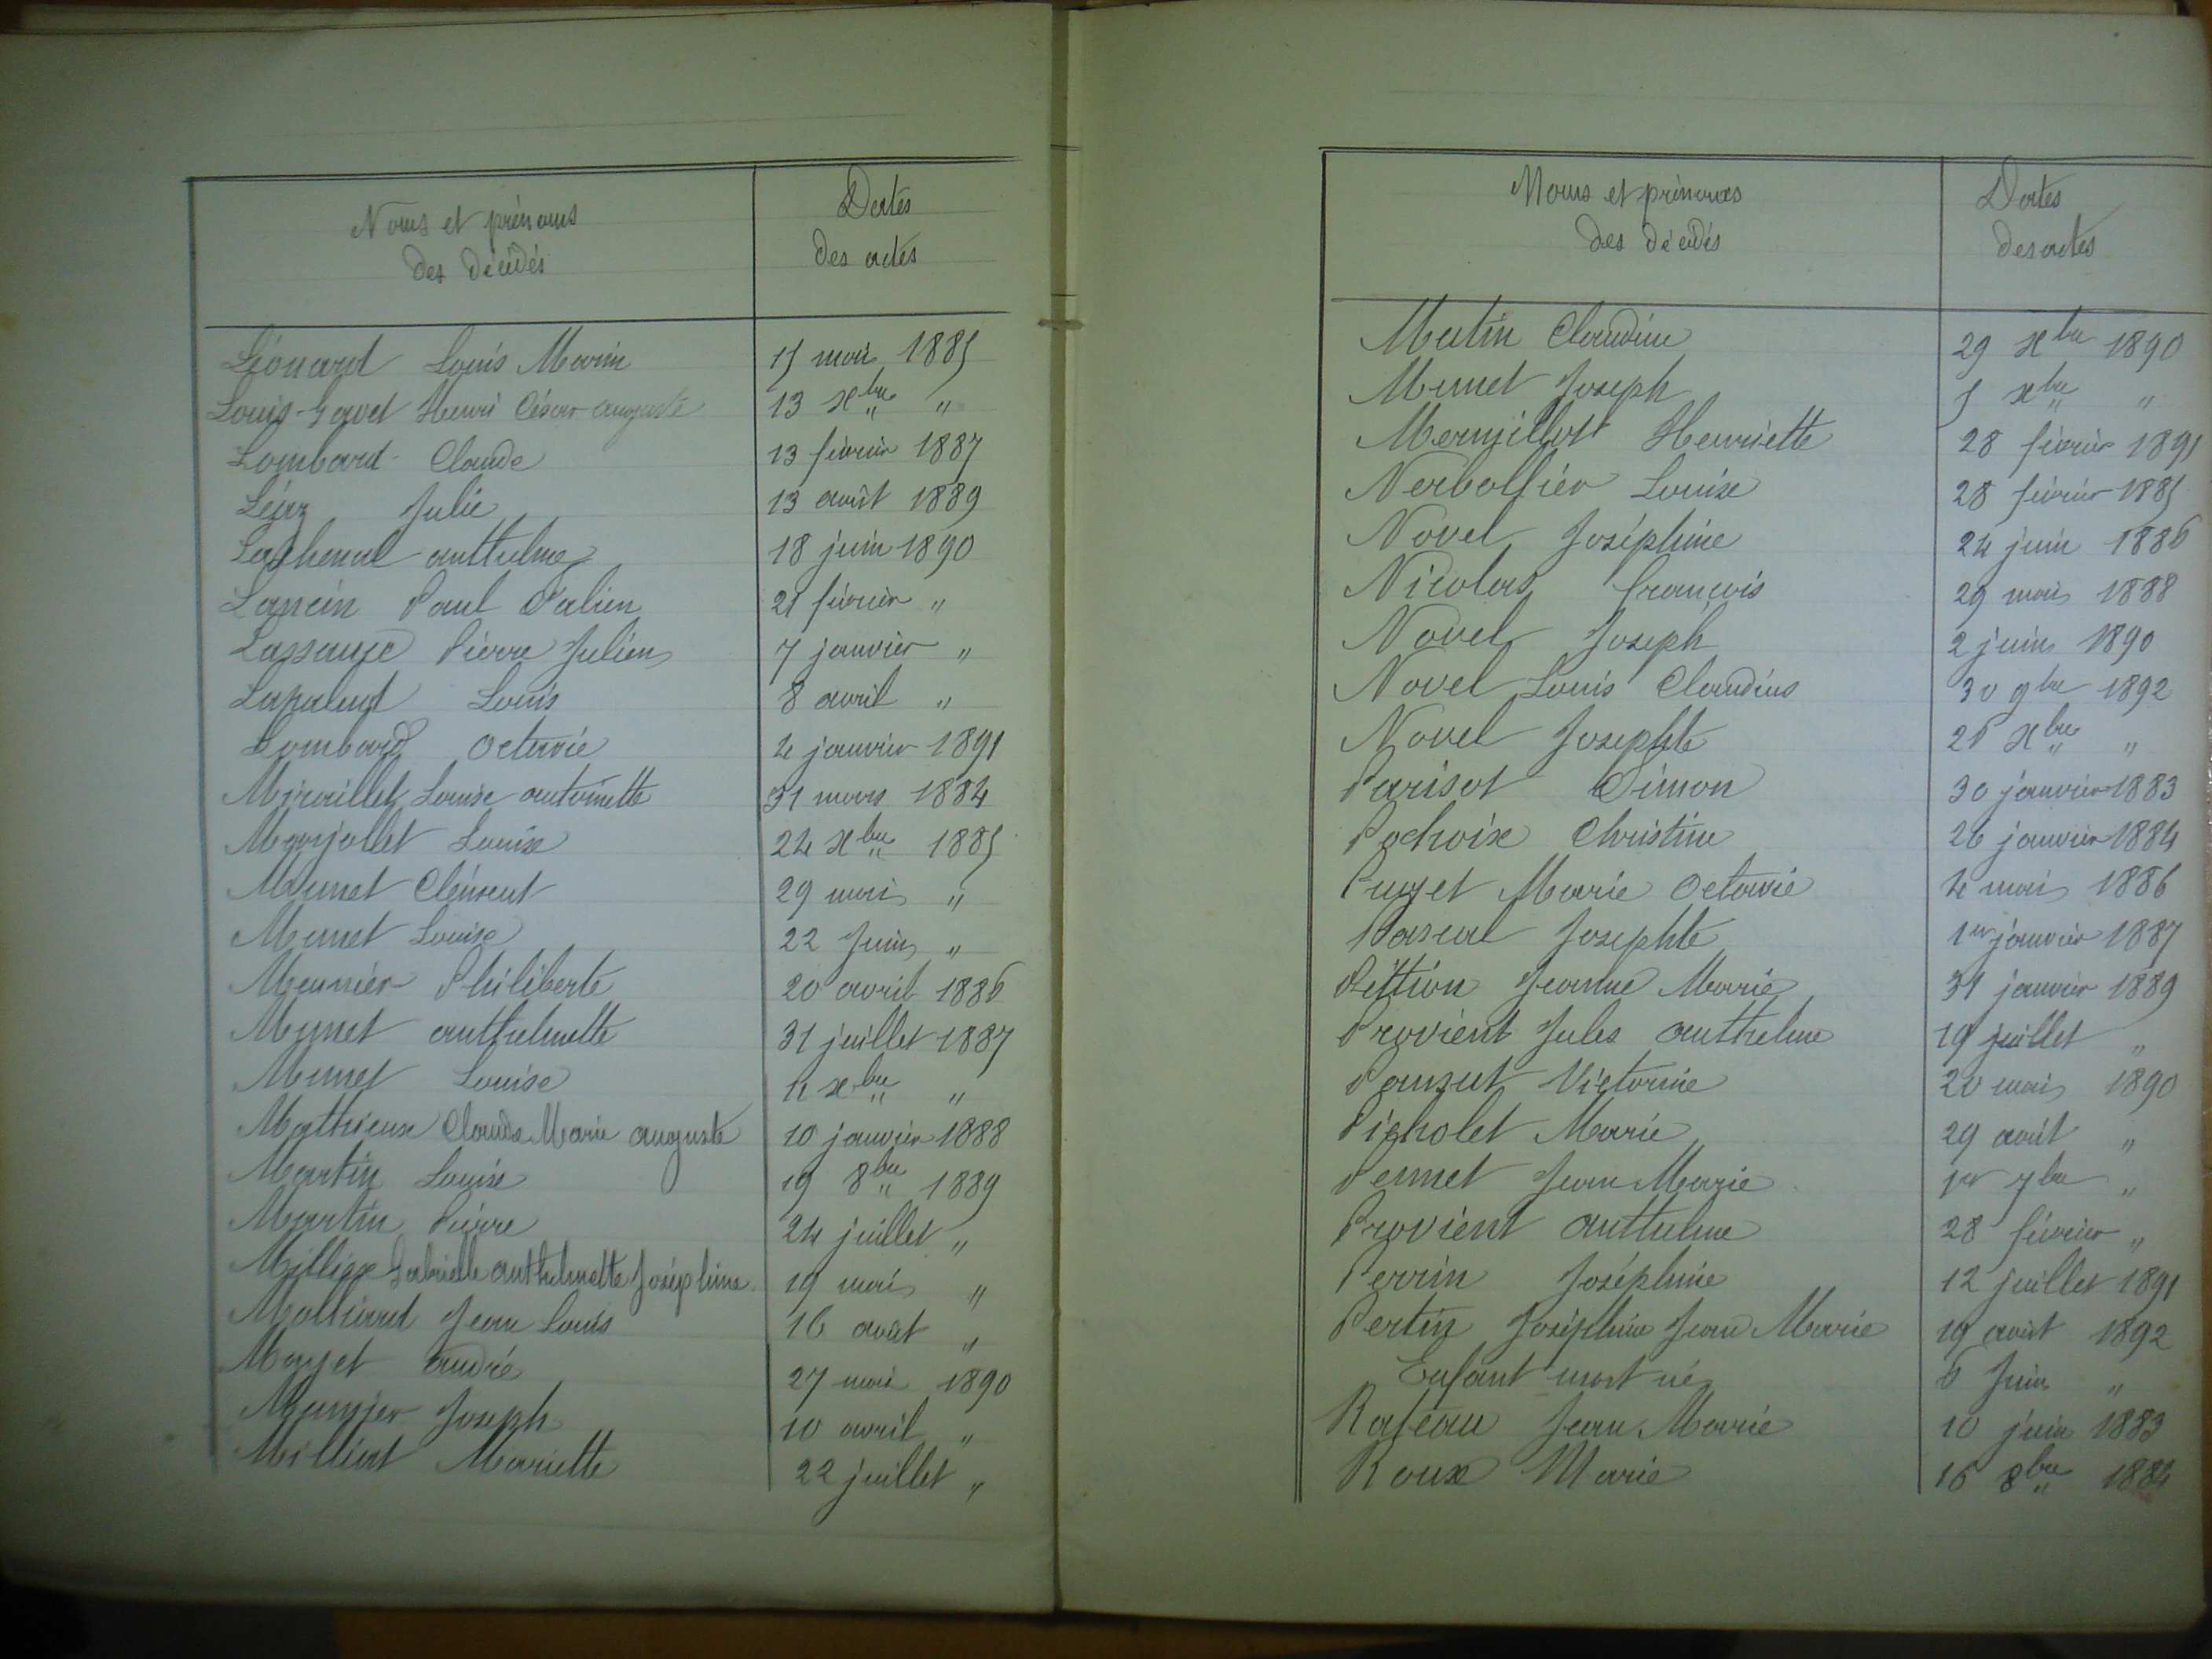 Noms et prénoms
des décédés
Dates
des actes
Léonard Louis Marin 15 mai 1885
Louis-Gavet Henri César auguste 13 xbre "
Lombard Claude 13 février 1887
Léaz Julie 13 août 1889
Lachenal anthelme 18 juin 1890
Lancin Paul 21 février "
Lassauge Pierre Julien 7 janvier "
Lapalud Louis 8 avril "
Lombard octavie 4 janvier 1891
Miraillet Louise antoinette 31 mars 1884
Marjollet Louise 24 xbre 1885
Munet Clément 29 mai "
Munet Louise 22 Juin "
Meunier Philiberte 20 avril 1886
Munet anthelmette 31 juillet 1887
Munet Louise 11 xbre "
Mathieux Claude Marie auguste 10 janvier 1888
Martin Louise 19 8bre 1889
Martin Pierre 24 juillet "
Milliex Gabrielle anthelmette Joséphine 19 mai "
Molliard Jean Louis 16 août "
Mayet andré 27 mai 1890
Munier Joseph 10 avril "
Milliat Mariette 22 juillet "
Noms et prénoms
des décédés
Dates
des actes
Matin Claudine 29 xbre 1890
Munet Joseph 5 xbre "
Mermillot Henriette 28 février 1891
Nerbollier Louise 28 février 1885
Novel Joséphine 24 juin 1886
Nicolas francois 29 mai 1888
Novel Joseph 2 juin 1890
Novel Louis Claudius 30 9bre 1892
Novel Josephte 25 xbre "
Parisot Simon 30 janvier 1883
Pochoix Christine 26 janvier 1884
Puget Marie Octavie 4 mai 1886
Pascal Josephte 1er janvier 1887
Pittion Jeanne Marie 31 janvier 1889
Provient Jules anthelme 19 juillet "
Panzut Victorine 20 mai 1890
Picholet Marie 29 août "
Pernet Jean Marie 1er 7bre "
Provient anthelme 28 février "
Perrin Joséphine 12 juillet 1891
Pertin Joséphin Jean Marie 19 août 1892
Enfant mort né 6 Juin "
Rateau Jean Marie 10 juin 1883
Roux Marie 16 8bre 1884